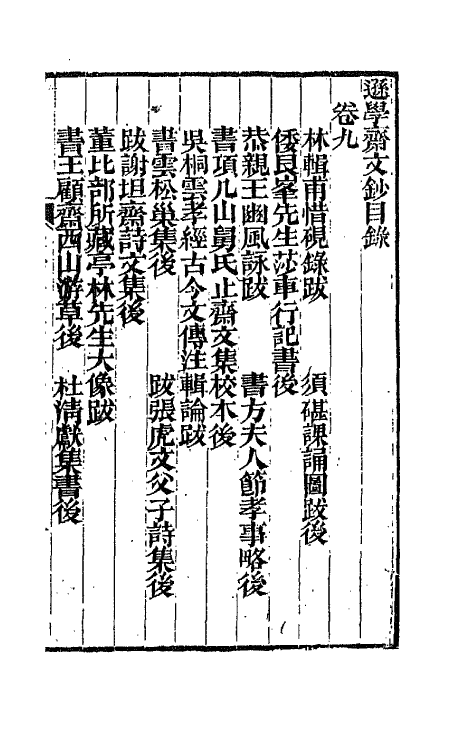 遜學齋文鈔目錄
卷九
林輯甫惜硯錄跋　須碪課誦圖跋後
倭艮峯先生莎車行記書後
恭親王豳風詠跋　書方夫人節孝事略後
書項几山舅氏止齋文集校本後
吳桐雲孝經古今文傳注輯論跋
書雲松巢集後　跋張虎文父子詩集後
跋謝坦齋詩文集後
董比部所藏亭林先生大像跋
書王顧齋西山游草後　杜清獻集書後